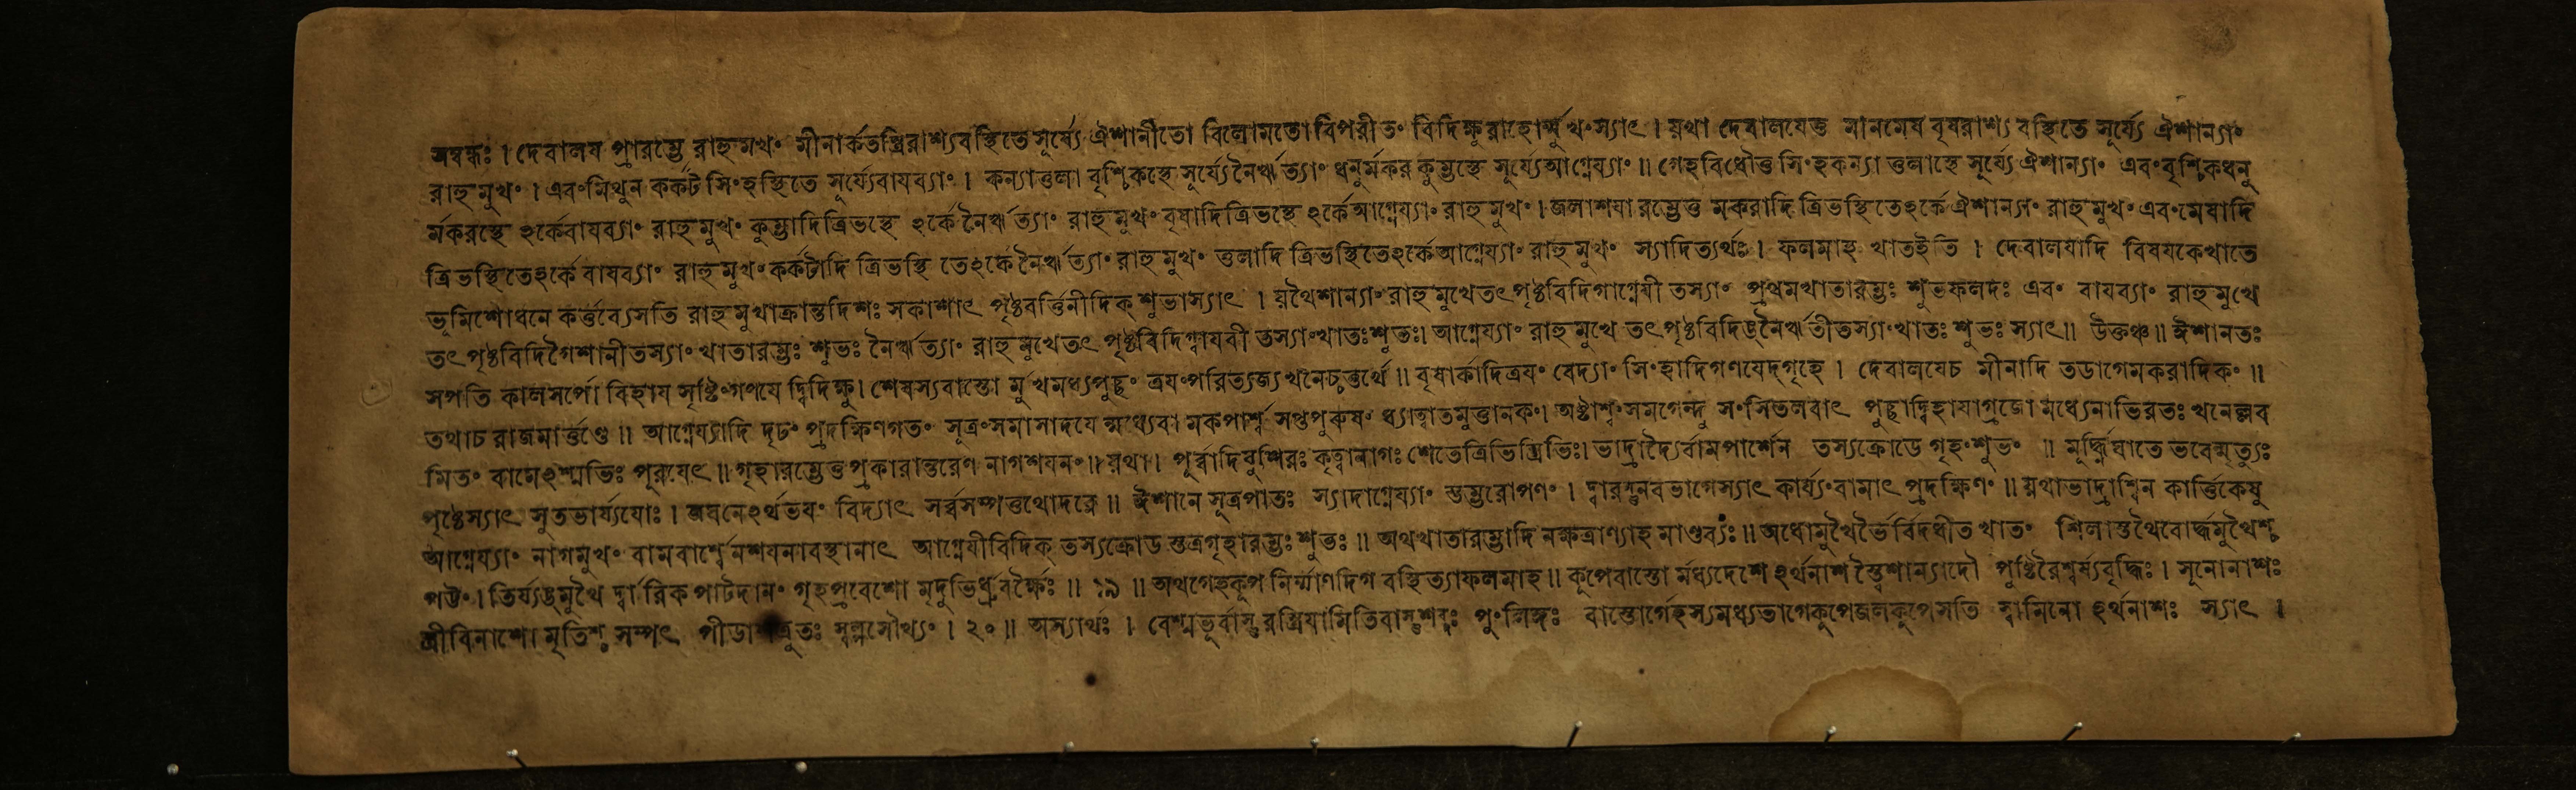 সম্বন্ধঃ । দেবালয প্রারম্ভে রাহুমখং মীনার্কতস্ত্রিরাশ্যবস্থিতে সূর্য্যে ঐশানীতো বিলোমতো বিপরীতং বিদিক্ষুরাহোর্ম্মুখংস্যাৎ । য়থা দেবালযেত্ত মীনমেষ বৃষরাশ্য বস্থিতে সূর্য্যে ঐশান্যাং
রাহুমুখং । এবংমিথুন কর্কট সিংহস্থিতে সূর্য্যেবাযব্যাং । কন্যাত্তলা বৃশ্চিকস্থে সূর্য্যেনৈরৃত্যাং ধনুর্মকর কুম্ভস্থে সূর্য্যেআগ্নেয্যাং ॥ গেহবিধৌত্ত সিংহকন্যা ত্তলাস্থে সূর্য্যে ঐশান্যাং এবংবৃশ্চিকধনু
র্মকরস্থে ঽর্কেবাযব্যাং রাহুমুখং কুম্ভাদিত্রিভস্থে ঽর্কে নৈরৃত্যাং রাহুমুখং বৃষাদিত্রিভস্থে ঽর্কেআগ্নেয্যাং রাহুমুখং । জলাশযা রম্ভেত্ত মকরাদি ত্রিভস্থিতেঽর্কে ঐশান্যাং রাহুমুখং এবংমেষাদি
ত্রিভস্থিতেঽর্কে বাযব্যাং রাহুমুখং কর্কটাদি ত্রিভস্থি তেঽর্কে নৈরৃত্যাং রাহুমুখং ত্তলাদি ত্রিভস্থিতেঽর্কেআগ্নেয্যাং রাহুমুখং স্যাদিত্যর্থঃ । ফলমাহ খাতইতি । দেবালযাদি বিষযকেখাতে
ভূমিশোধনে কর্ত্তব্যেসতি রাহুমুখাক্রান্তদিশঃ সকাশাৎ পৃষ্ঠবর্ত্তিনীদিক্ শুভাস্যাৎ । য়থৈশান্যাং রাহুমুখেতৎ পৃষ্ঠবিদিগাগ্নেযী তস্যাং প্রথমখাতারম্ভঃ শুভফলদঃ এবং বাযব্যাং রাহুমুখে
তৎ পৃষ্ঠবিদিগৈশানীতস্যাং খাতারম্ভঃ শুভঃ নৈরৃত্যাং রাহুমুখেতৎ পৃষ্ঠবিদিগ্বাযবী তস্যাংখাতঃশুভঃ। আগ্নেয্যাং রাহুমুখে তৎপৃষ্ঠবিদিঙ্নৈরৃতীতস্যাংখাতঃ শুভঃ স্যাৎ॥ উক্তঞ্চ॥ ঈশানতঃ
সপতি কালসর্পো বিহায সৃষ্টিংগণযে দ্বিদিক্ষু। শেষস্যবাস্তো র্মুখমধ্যপুচ্ছং ত্রযংপরিত্যজ্য খনেচ্চত্তর্থে ॥ বৃষার্কাদিত্রযং বেদ্যাং সিংহাদিগণযেদ্গৃহে । দেবালযেচ মীনাদি তডাগেমকরাদিকং ॥
তথাচ রাজমার্ত্তণ্ডে ॥ আগ্নেয্যাদি দৃঢং প্রদক্ষিণগতং সূত্রংসমাসাদযে ন্মধ্যেবা মকপার্শ্ব সপ্তপুরুষং ধ্যাত্বাতমুত্তানকং। পুচ্ছাদ্বিহাযাগ্রজো মধ্যেনাভিরতঃ খনেল্লব
মিতং বামেঽশ্মভিঃ পূরযেৎ ॥ গৃহারম্ভেত্তপ্রকারান্তরেণ নাগশযনং ॥ য়থা। পূর্ব্বাদিষুশিরঃ কৃত্বানাগঃ শেতেত্রিভিস্ত্রিভিঃ। ভাদ্রাদ্যৈর্বামপার্শেন তস্যক্রোডে গৃহংশুভং ॥ মূর্দ্ধ্নিঘাতে ভবেন্মৃত্যুঃ
পৃষ্ঠেস্যাৎ সুতভার্য্যযোঃ । জঘনেঽর্থভযং বিদ্যাৎ সর্ব্বসম্পত্তথোদরে ॥ ঈশানে সূত্রপাতঃ স্যাদাগ্নেয্যাং স্তম্ভরোপণং । দ্বারন্তুনবভাগেস্যাৎ কার্য্যংবামাৎ প্রদক্ষিণং ॥ য়থাভাদ্রাশ্বিন কার্ত্তিকেষু
আগ্নেয্যাং নাগমুখং বামবার্শ্বেনশযনাবস্থানাৎ আগ্নেযীবিদিক্ তস্যক্রোড স্তত্রগৃহারম্ভঃ শুভঃ ॥ অথখাতারম্ভাদি নক্ষত্রাণ্যাহ মাণ্ডব্যঃ ॥ অধোমুখৈর্ভৈর্বিদধীত খাতং শিলাস্তথৈবোর্দ্ধমুথৈশ্চ
পট্টং । তির্য্যঙ্মুথৈ র্দ্বারিক পাটদানং গৃহপ্রবেশো মৃদুভির্ধ্রুবর্ক্ষৈঃ ॥ ১৯ ॥ অথগেহকূপ নির্ম্মাণদিগ বস্থিত্যাফলমাহ ॥ কূপেবাস্তো র্মধ্যদেশে ঽর্থনাশ স্ত্বৈশান্যাদৌ পুষ্টিরৈশ্বর্য্যবৃদ্ধিঃ । সূনোনাশঃ
স্ত্রীবিনাশো মৃতিশ্চ সম্পৎ পীডা শত্রুতঃ স্বল্পসৌখ্যং । ২০ ॥ অস্যার্থঃ । বেশ্মভূর্বাস্তু রস্ত্রিযামিতিবাস্তুশব্দঃ পুংলিঙ্গঃ বাস্তোর্গেহস্যমধ্যভাগেকূপেজলকূপেসতি স্বামিনো ঽর্থনাশঃ স্যাৎ ।